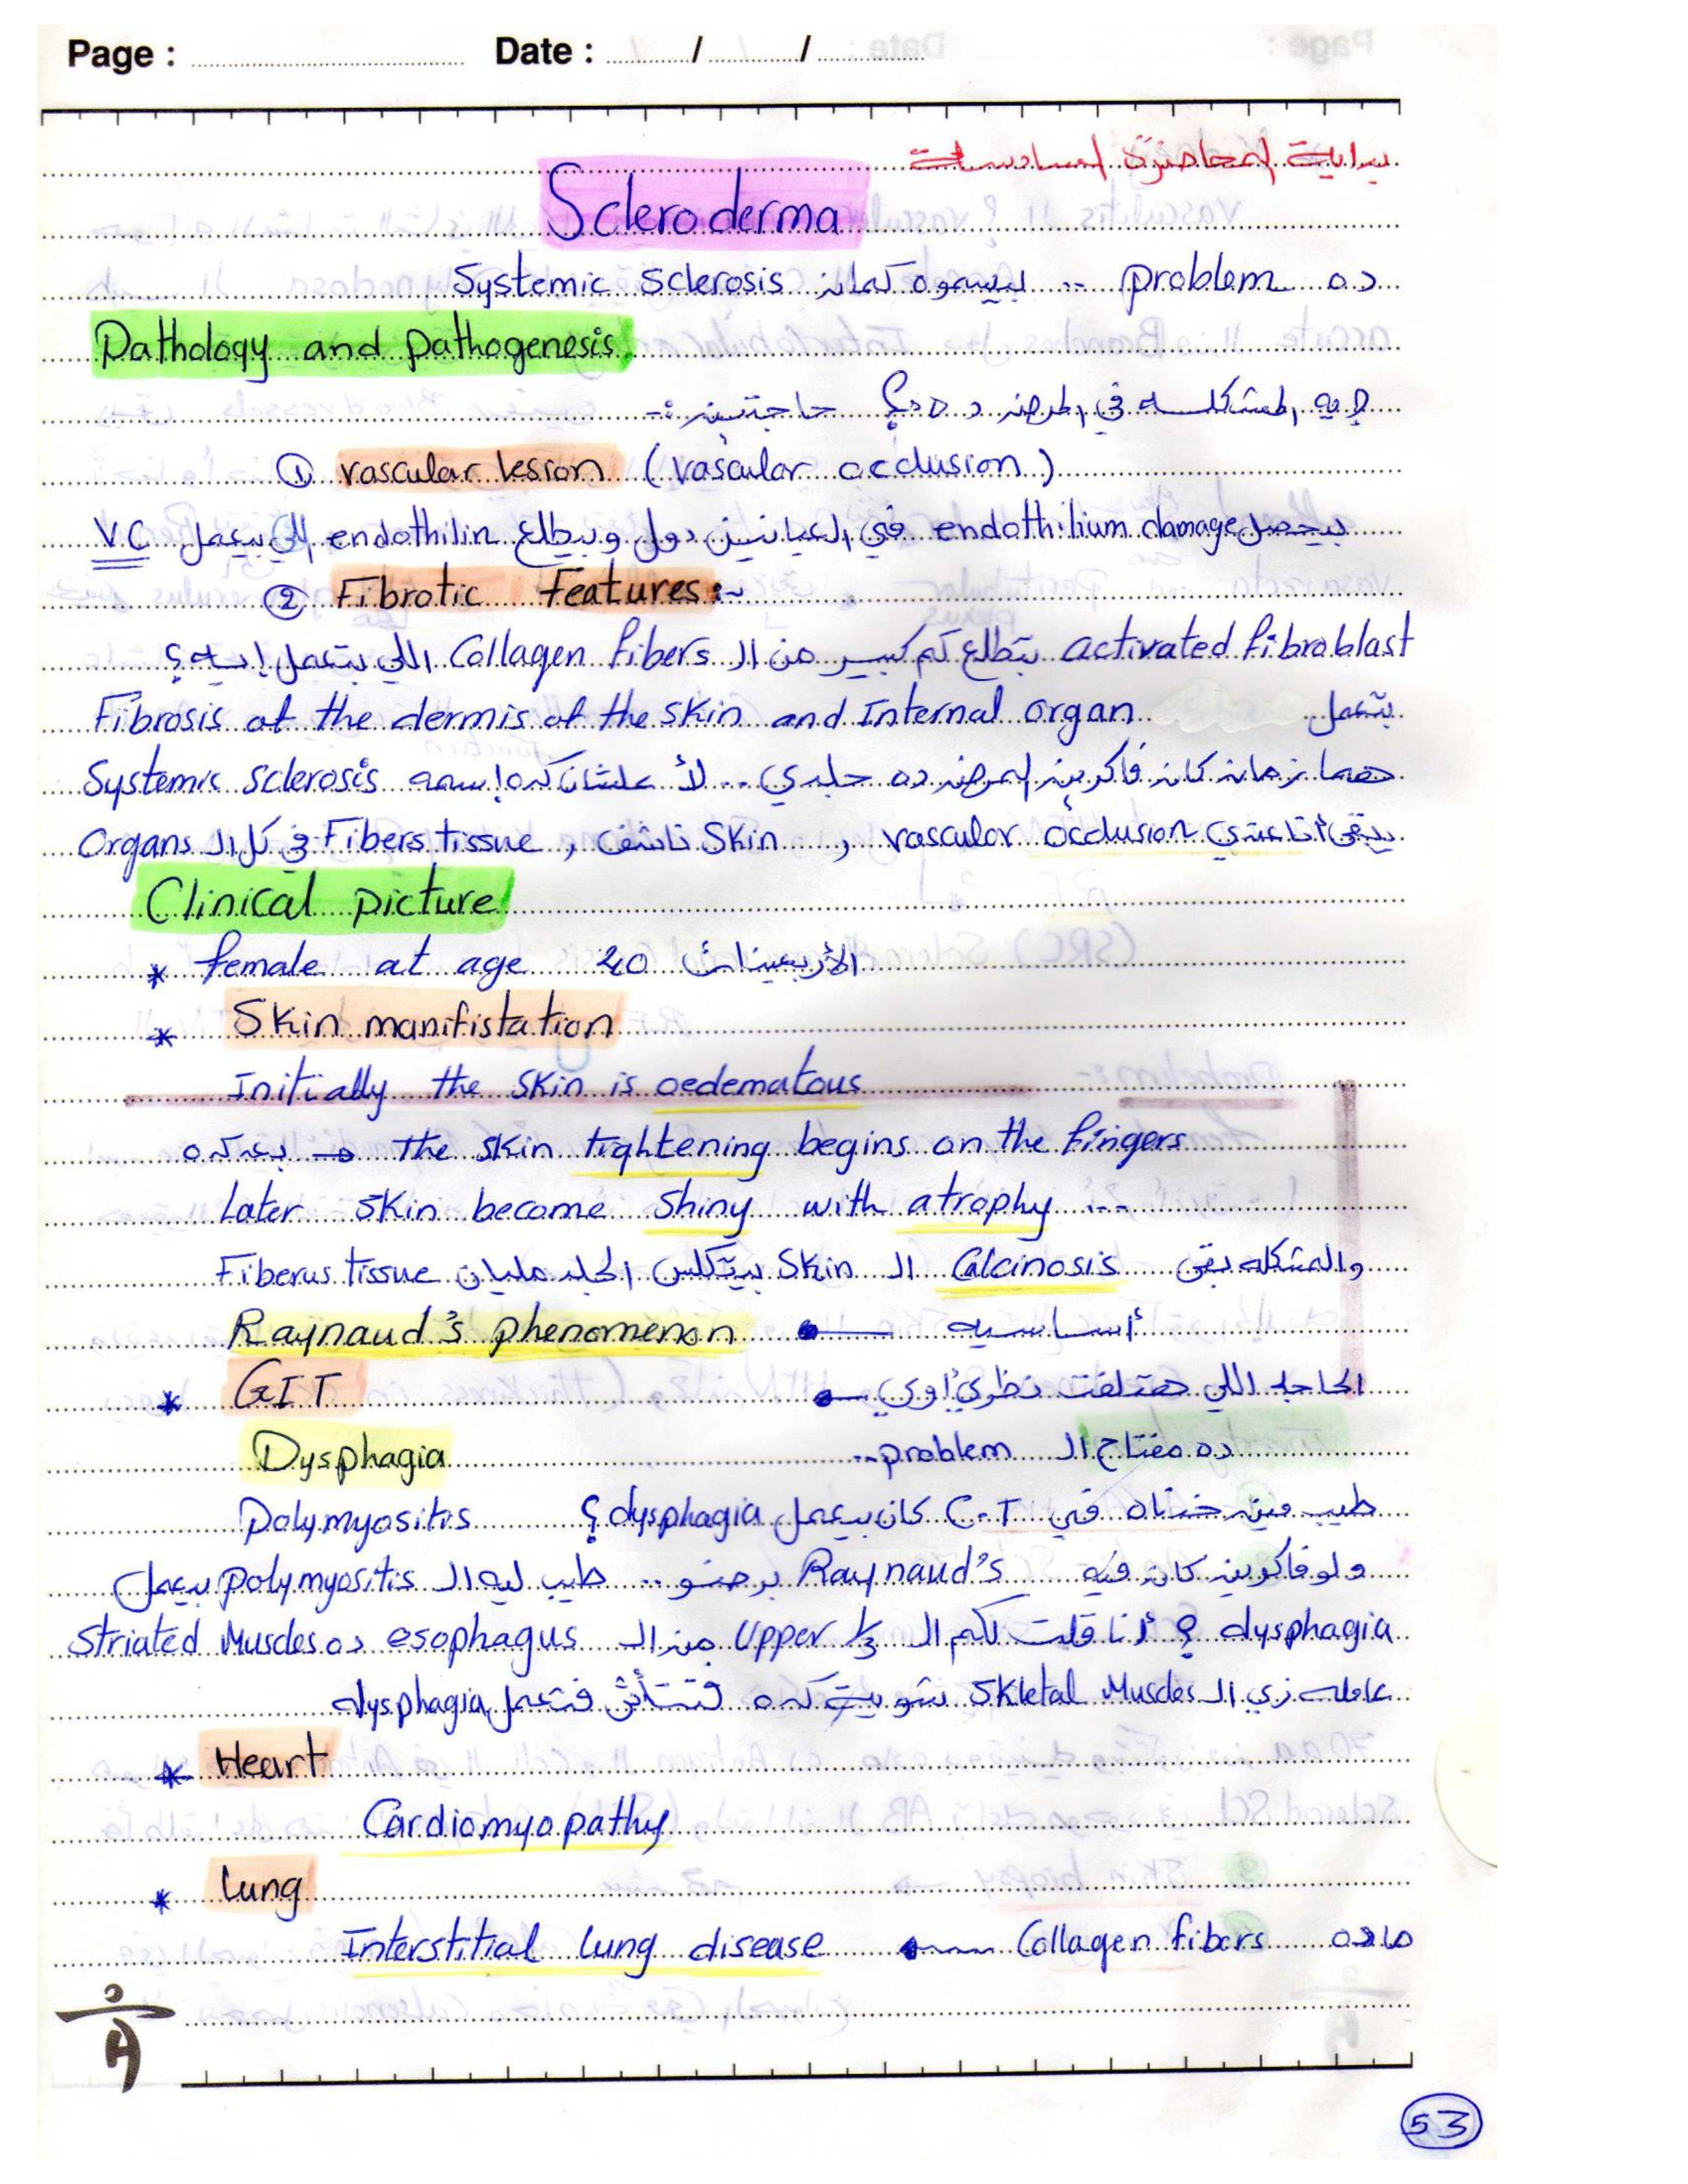 Page : Date : / /
بداية المحاضرة السادسة
Scleroderma
ده problem .. بيسموه كمان Systemic Sclerosis
Pathology and pathogenesis
إيه المشكله في المرض ده ؟ حاجتين :-
① vascular lesion (vascular occlusion)
بيحصل endothilium damage في العيانين دول وبيطلع endothilin اللي بيعمل V.C
② Fibrotic Features :~
activated fibroblast بتطلع كم كبير من الـ Collagen fibers اللي بتعمل إيه ؟
بتعمل Fibrosis at the dermis of the skin and Internal organ
هما زمان كان فاكرين المرض ده جلدي .. لأ علشان كده إسمه Systemic Sclerosis
يبقى أنا عندي vascular occlusion , Skin ناشف , Fibers tissue في كل الـ Organs
Clinical picture
* female at age 40 الأربعينات
* Skin manifistation
Initially the skin is oedematous
بعد كده → the skin tightening begins on the fingers
Later skin become shiny with atrophy ...
والمشكله بقى Calcinosis الـ Skin بيتكلس الجلد مليان Fiberus tissue
Raynaud's phenomenon ← أساسيه
* GIT ← الحاجه اللي هتلفت نظري أوي
Dysphagia ده مفتاح الـ problem..
طيب مين خدناه في C.T كان بيعمل dysphagia ؟ Polymyositis
ولو فاكرين كان فيه Raynaud's برضو .. طيب ليه الـ polymyositis بيعمل
dysphagia ؟ أنا قلت لكم الـ Upper 1/3 من الـ esophagus ده Striated Muscles
عامله زي الـ Skletal Muscles شوية كده فتتأثر فتعمل dysphagia
* Heart
Cardiomyopathy
* Lung
Interstitial lung disease ← Collagen fibers ماده
53